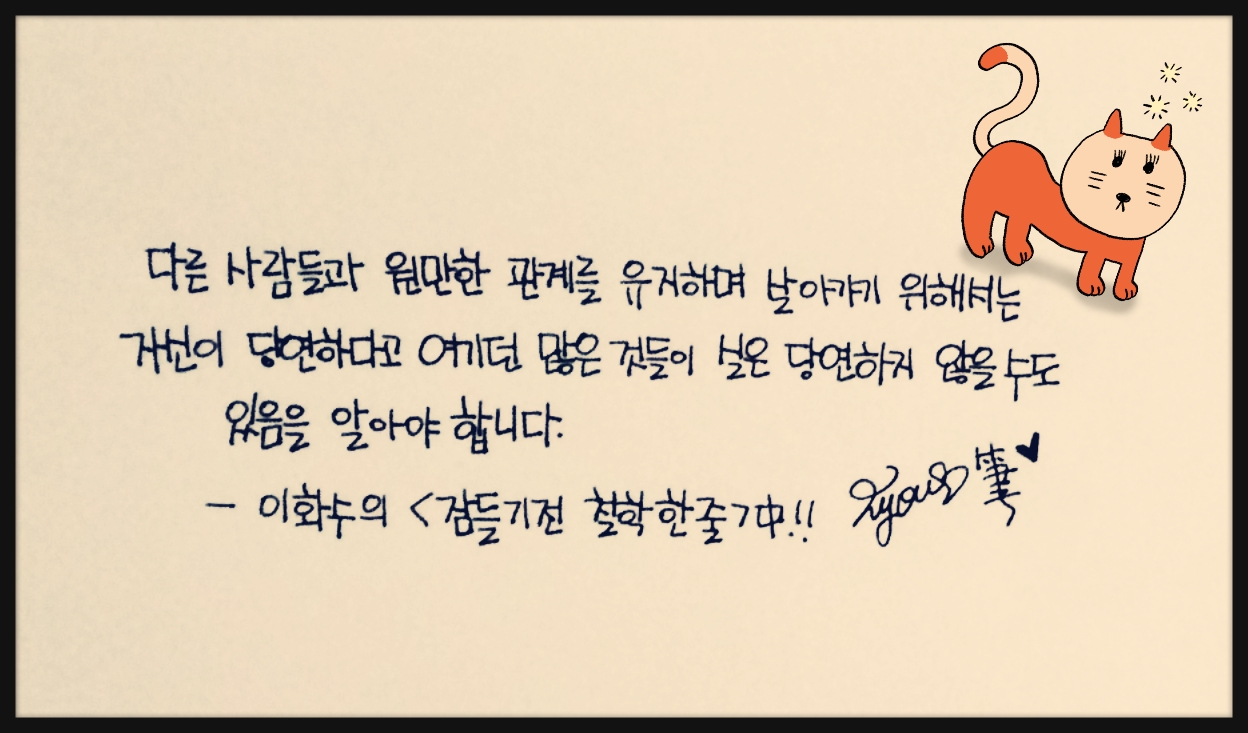 다른 사람들과 원만한 관계를 유지하며 살아가기 위해서는
자신이 당연하다고 여기던 많은 것들이 실은 당연하지 않을 수도
있음을 알아야 합니다.
- 이화수의 <잠들기 전 철학 한 줄> 中!!
筆